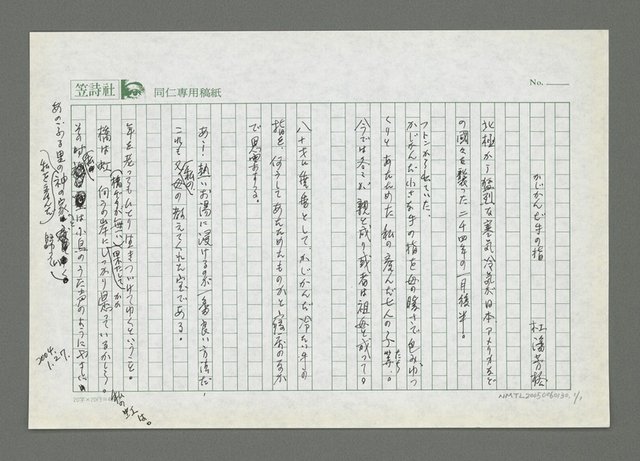 笠詩社
同仁專用稿紙
No.
かじかんだ手の指
杜潘芳格
北極から猛烈な寒気、冷気が日本アメリカなど
の国々を襲った二千四年の一月後半。
フトンから出ていた、
かじかんだ小さな手の指を母の暖さで包みゆっ
くりとあたためた私の産んだ七人の子等。
たち
今では各々が親と成り或者は祖母と成って。
八十才に
としてかじかんだ冷たい手の
指を、何うしてあたためたものかと寝床のなか
で思案する。
あゝ!熱いお湯に浸けるのが一番良い方法だ。
これも父母の教えてくれた宝である。
私の
年を老ってもひとり生きつづけてゆくということ。
橋は虹、何うの岸にしっかり
ているかしら。
その時
は小鳥のうた声のようにやさしい
あのふる里の神の家
私の虹は。
2004.
1.27.
NMTL20050060130. 1/1